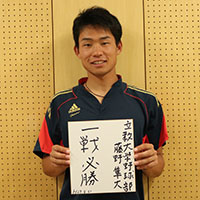 立教大学野球部
藤野隼大
一戦必勝